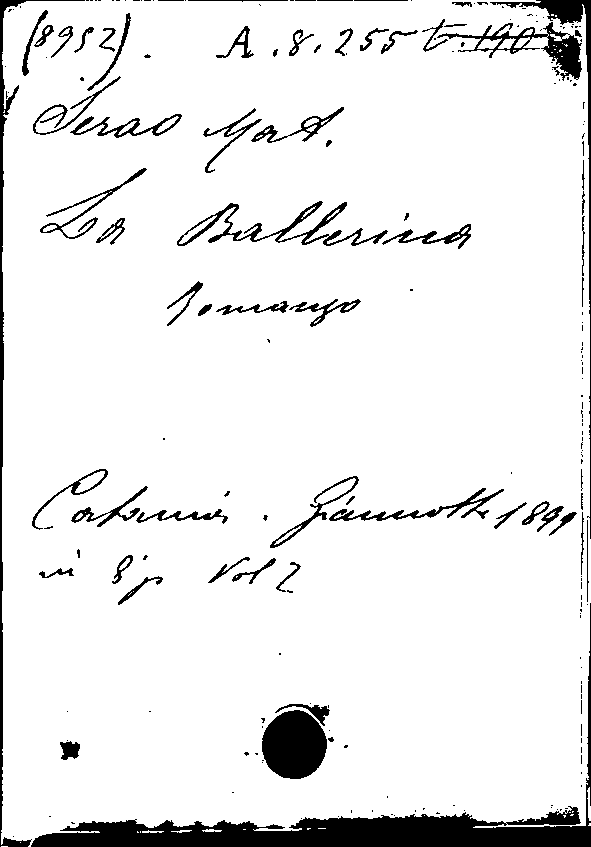 (8952). A.8.255
Serao Mat.
La Ballerina
Romanzo
Catania. Giannotta 1899
in 8°p Vol 2